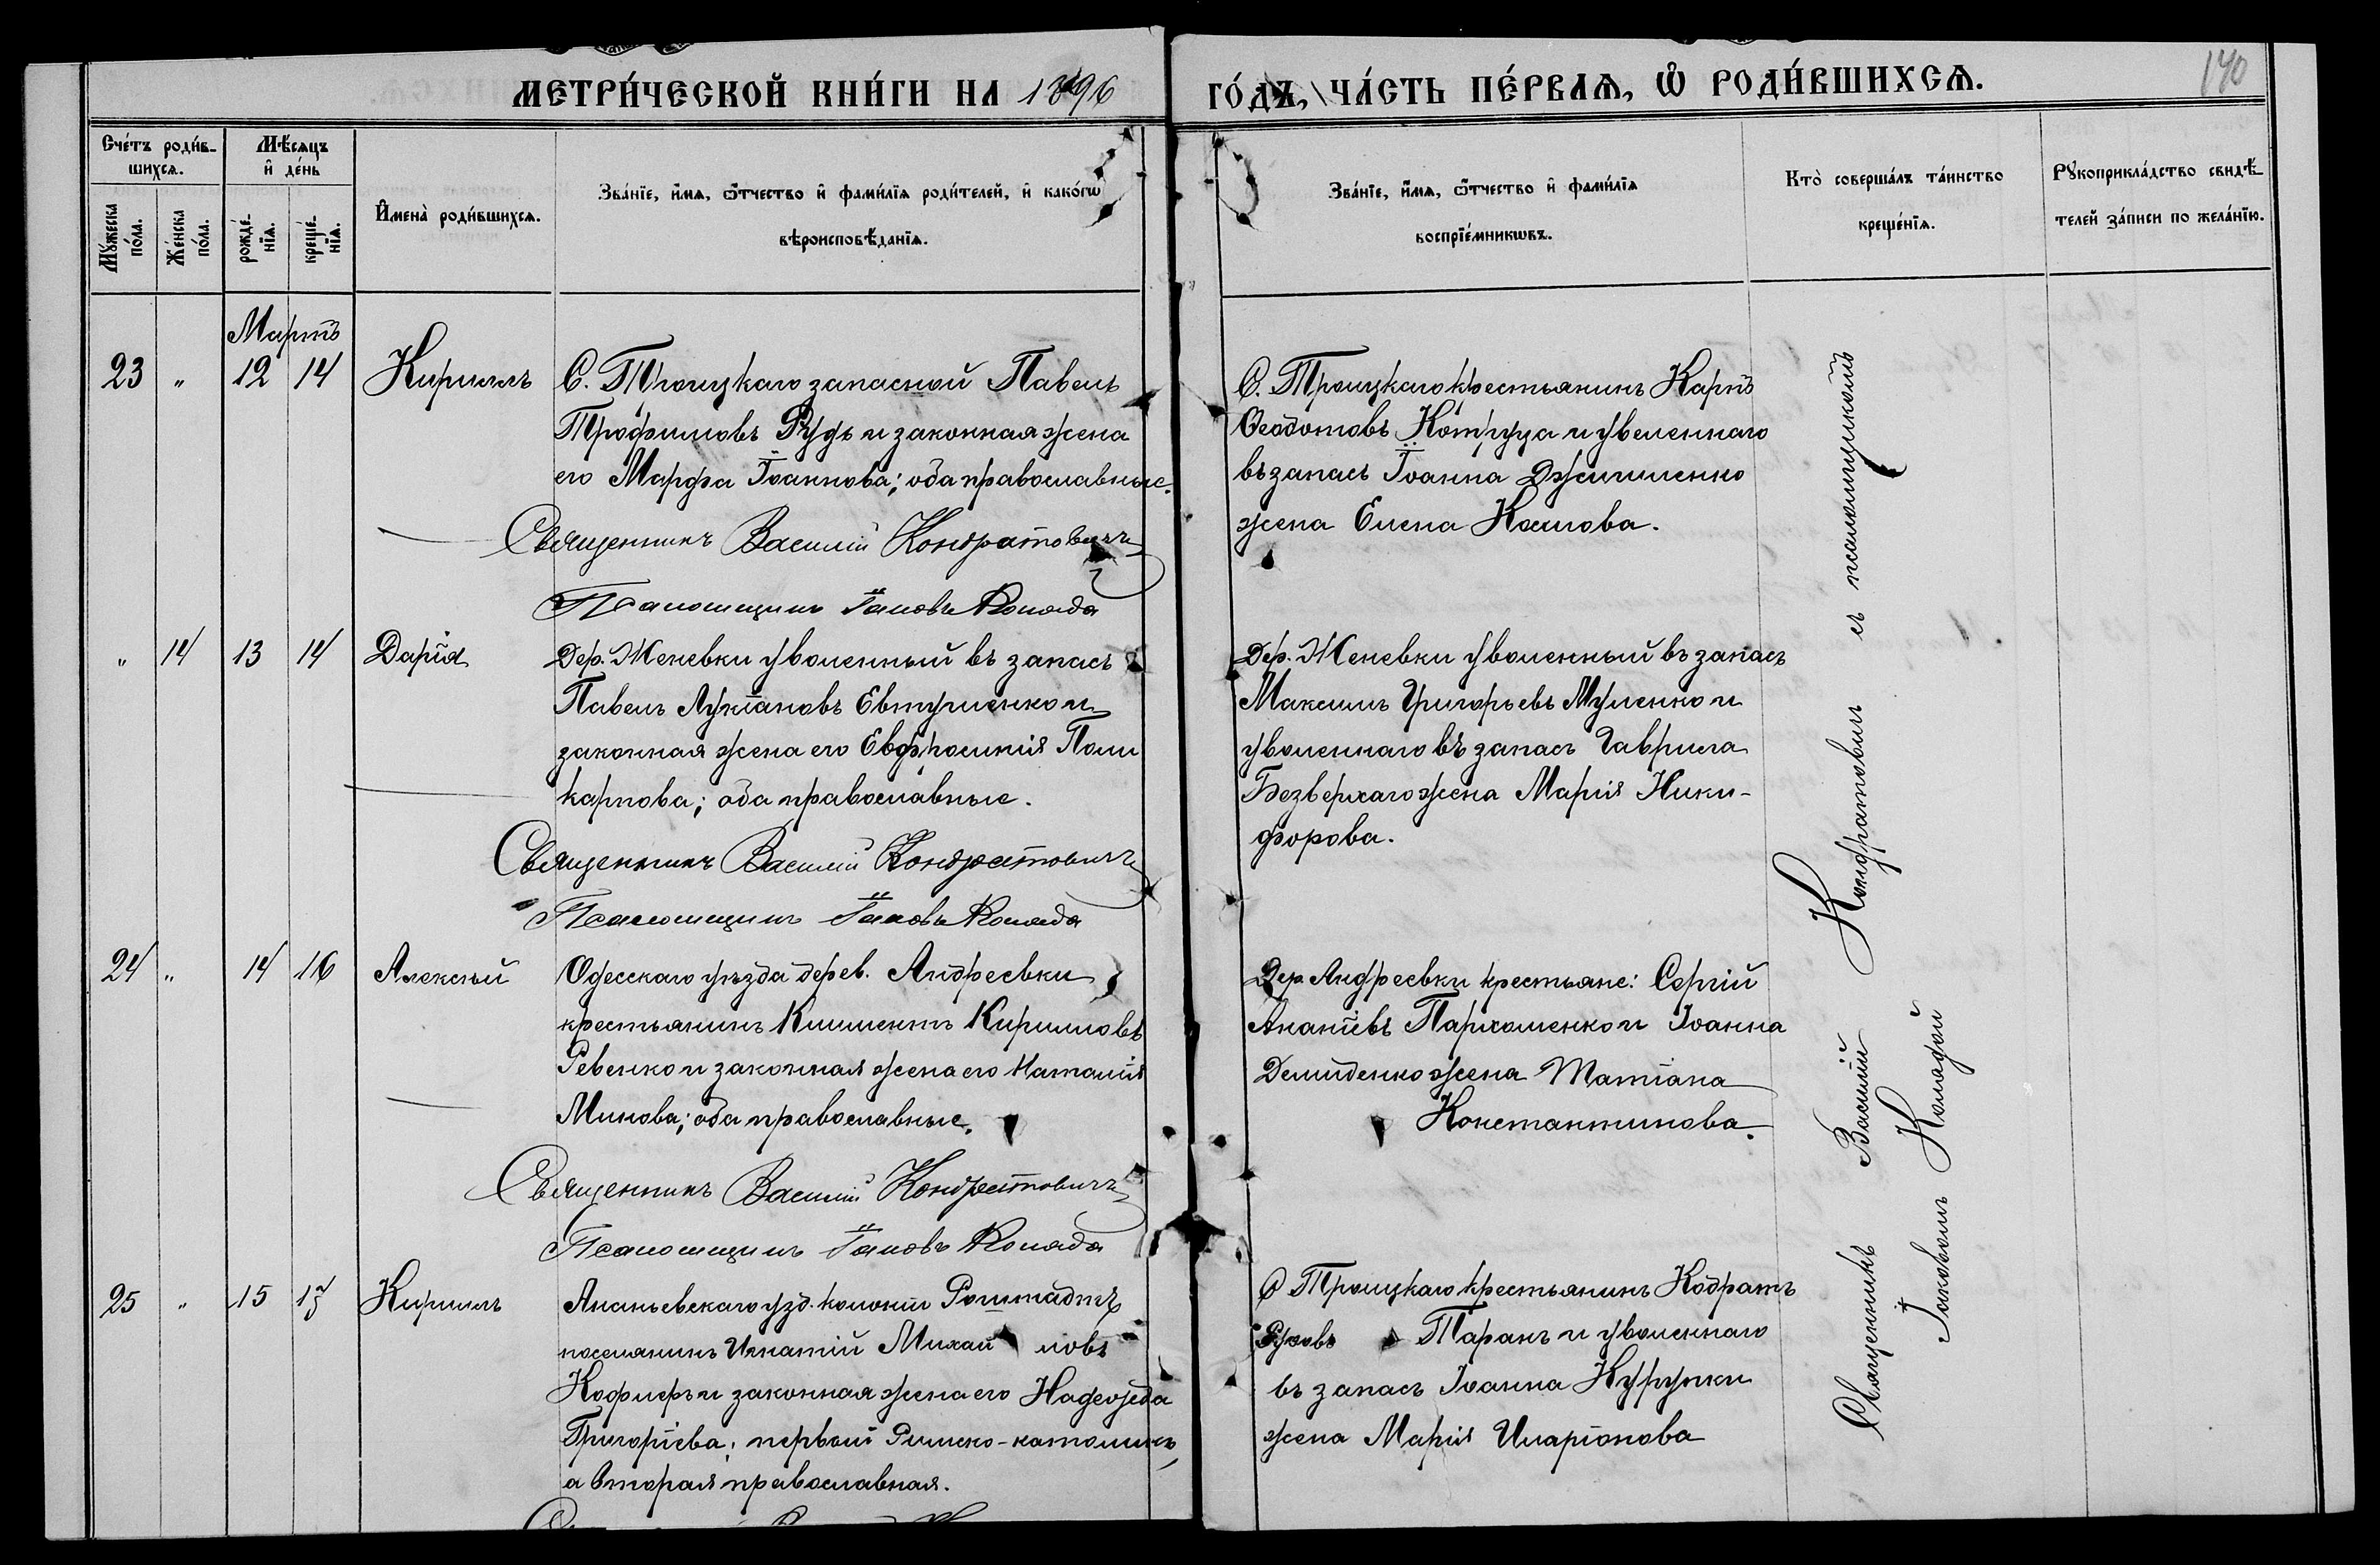 МЕТРИ́ЧЕСКОЙ КНИ́ГИ НА 1896
ГО́ДЪ, ЧА́СТЬ ПЕ́РВАѦ, Ѡ҆ РОДИ́ВШИХСѦ.
140
Сче́тъ роди́в-
шихсѧ.
Мѣ́сѧцъ
и҆ де́нь
Мꙋ́жеска
по́ла.
Же́нска
по́ла.
рожде́-
нїѧ.
креще́-
нїѧ.
И҆мена̀ роди́вшихсѧ.
Зва́нїе, и҆́мѧ, ѻ҆́тчество и҆ фами́лїѧ роди́телей, и҆ како́гѡ
вѣроисповѣ́данїѧ.
Зва́нїе, и҆́мѧ, ѻ҆́тчество и҆ фами́лїѧ
воспрїе́мникѡвъ.
Кто̀ соверша́лъ та́инство
креще́нїѧ.
Рꙋкоприкла́дство свидѣ́-
телей за́писи по жела́нїю.
Мартъ
23 " 12 14 Кириллъ
С. Троицкаго запасной Павелъ
Трофимовъ Рудь и законная жена
его Марфа Іоаннова; оба православные.
Священникъ Василій Кондратовичъ
Псаломщикъ Іаковъ Коляда
С. Троицкаго крестьянинъ Карпъ
Ѳеодотовъ и уволеннаго
въ запасъ Іоанна
жена Елена
" 14 13 14 Дарія
Дер. Женевки уволенный въ запасъ
Павелъ Лукіановъ Евтушенко и
законная жена его Евфросинія Поли
карпова; оба православные.
Священникъ Василій Кондратовичъ
Псаломщикъ Іаковъ Коляда
Дер. Женевки уволенный въ запасъ
Максимъ Григорьевъ Муленко и
уволеннаго въ запасъ Гавриила
Безверхаго жена Марія Ники-
форова.
24 " 14 16 Алексѣй
Одесскаго уѣзда дерев. Андреевки
крестьянинъ Климентъ Кирилловъ
Ревенко и законная жена его Наталія
Минова; оба православные.
Священникъ Василій Кондратовичъ
Псаломщикъ Іаковъ Коляда
Дер. Андреевки крестьяне: Сергій
Ананіевъ Пархоменко и Іоанна
Демиденко жена Татіана
Константинова.
25 " 15 17 Кириллъ
Ананьевскаго уѣзд. колоніи
поселянинъ Игнатій Михай ловъ
и законная жена его Надежда
Григоріева; первый Римско-католикъ,
а вторая православная.
С Троицкаго крестьянинъ Кодратъ
Таранъ и уволеннаго
въ запасъ Іоанна
жена Марія Иларіонова
Священникъ Василій Кондратовичъ съ псаломщикомъ
Іаковомъ Колядой